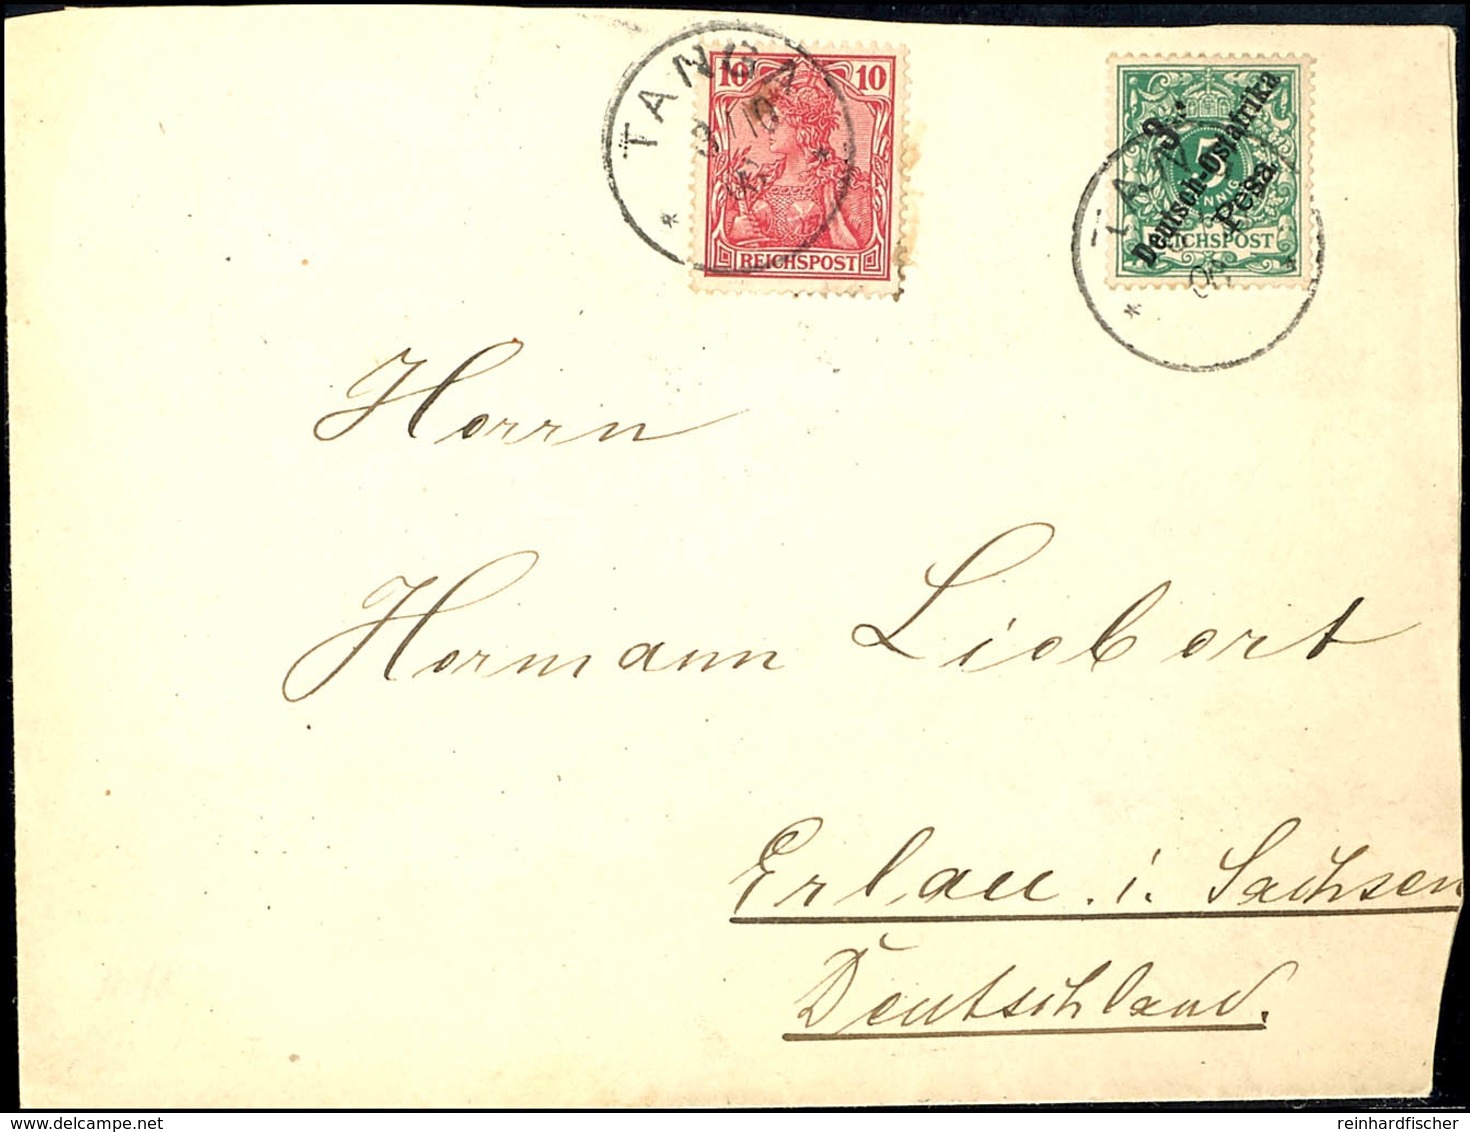 TANGA
10 10
3/10
REICHSPOST
3
Deutsch-Ostafrika
Pesa
5
REICHSPOST
Herrn
Hermann Liebert
Erlau i. Sachsen
Deutschland.
reinhardfischer